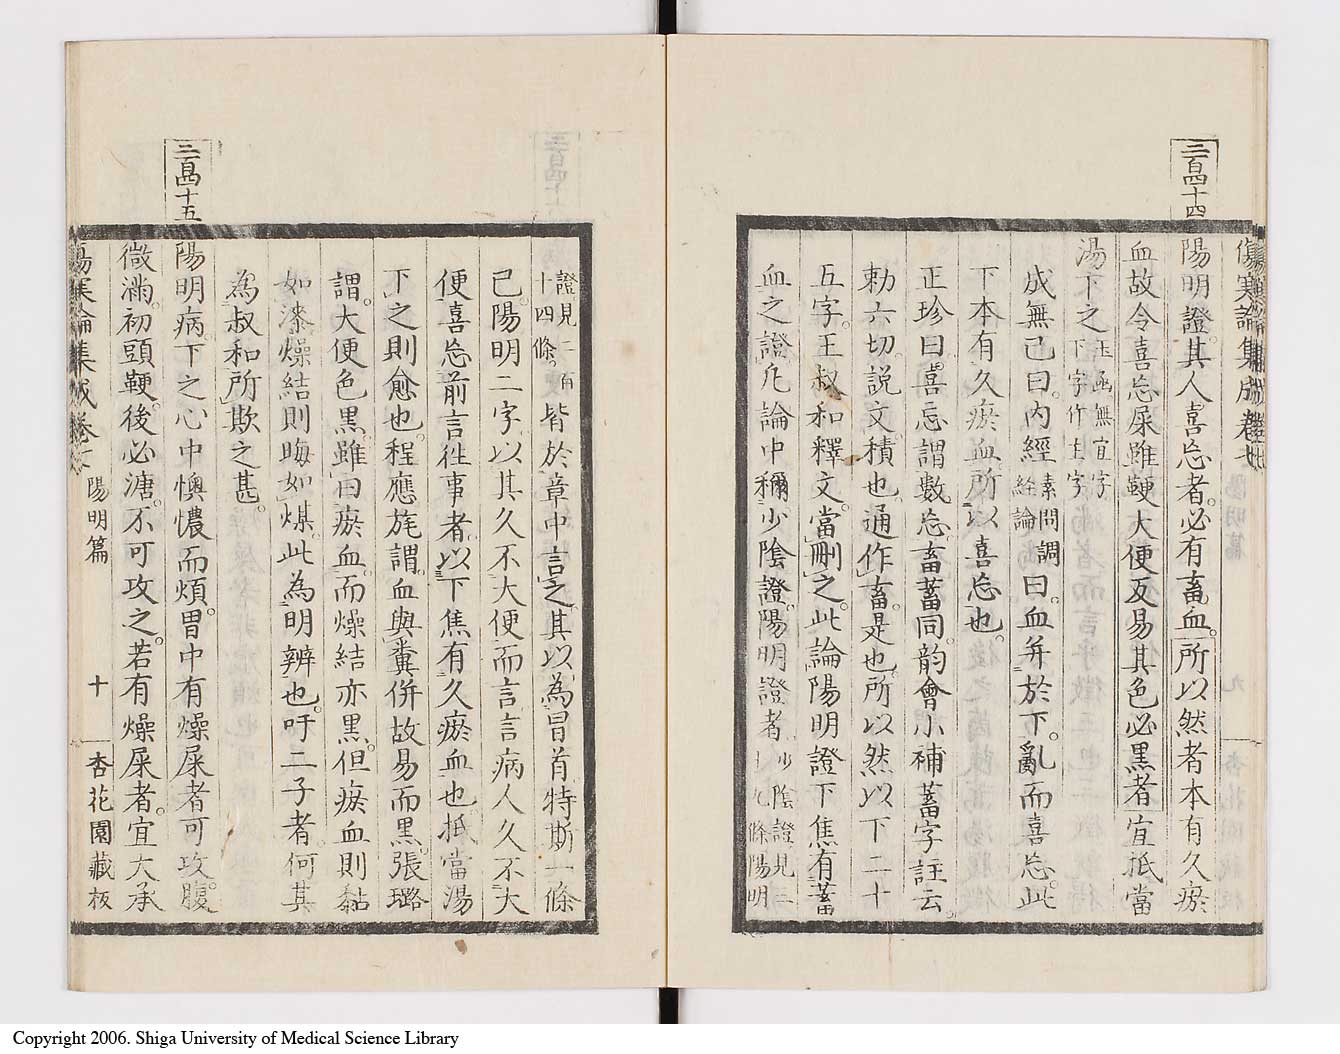 傷寒論集成卷七
三百四十四
陽明證。其人喜忘者。必有畜血。所以然者本有久瘀
血故令喜忘屎雖鞕大便反易其色必黑者宜抵當
湯下之玉函無宜字下字作主字
成無己曰。內經素問調經論曰。血并於下。亂而喜忘。此
下本有久瘀血。所以喜忘也。
正珍曰。喜忘謂數忘畜蓄同。韵會小補蓄字註云。
勅六切。説文。積也。通作畜。是也。所以然以下二十
五字。王叔和釋文。當刪之。此論陽明證下焦有蓄
血之證。凡論中稱少陰證。陽明證者。少陰證見三百九條陽明
證見二百十四條。皆於章中言之。其以為冒首。特斯一條
已。陽明二字。以其久不大便而言。言病人久不大
便喜忘前言往事者。以下焦有久瘀血也。抵當湯
下之則愈也。程應旄謂。血與糞併故易而黑。張璐
謂。大便色黑。雖曰瘀血。而燥結亦黑。但瘀血則黏
如漆。燥結則晦如煤。此為明辨也。吁二子者。何其
為叔和所欺之甚。
三百四十五
陽明病。下之心中懊憹而煩。胃中有燥屎者可攻。腹
微滿。初頭鞕。後必溏。不可攻之。若有燥屎者。宜大承
傷寒論集成卷七 陽明篇 十 杏花園藏板
Copyright 2006. Shiga University of Medical Science Library